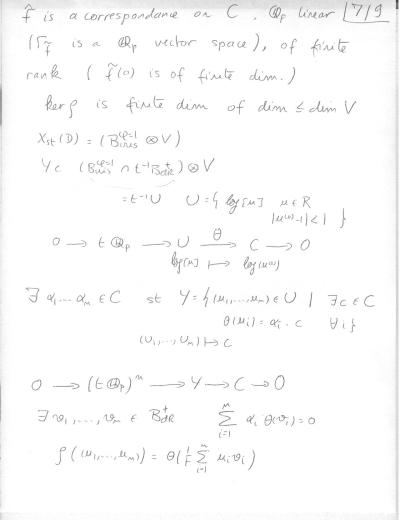 f̃ is a correspondance on C, ℚp linear 7/9
(Γf̃ is a ℚp vector space), of finite
rank ( f̃(0) is of finite dim.)
ker ρ is finite dim of dim ≤ dim V
Xst(D) = (Bcris^φ=1 ⊗ V)
Y ⊂ (Bcris^φ=1 ∩ t⁻¹BdR⁺) ⊗ V
= t⁻¹U U = { log[u] u ∈ R
|u⁽⁰⁾-1| < 1 }
0 → tℚp → U →θ C → 0
log[u] ↦ log(u⁽⁰⁾)
∃ α₁ ... αm ∈ C st Y = { (u₁, ..., um) ∈ U | ∃ c ∈ C
θ(ui) = αi · c ∀ i }
(u₁, ..., um) ↦ c
0 → (tℚp)ᵐ → Y → C → 0
∃ v₁, ..., vm ∈ BdR⁺ Σ_{i=1}^m αi θ(vi) = 0
ρ((u₁, ..., um)) = θ(1/t Σ_{i=1}^m ui vi)